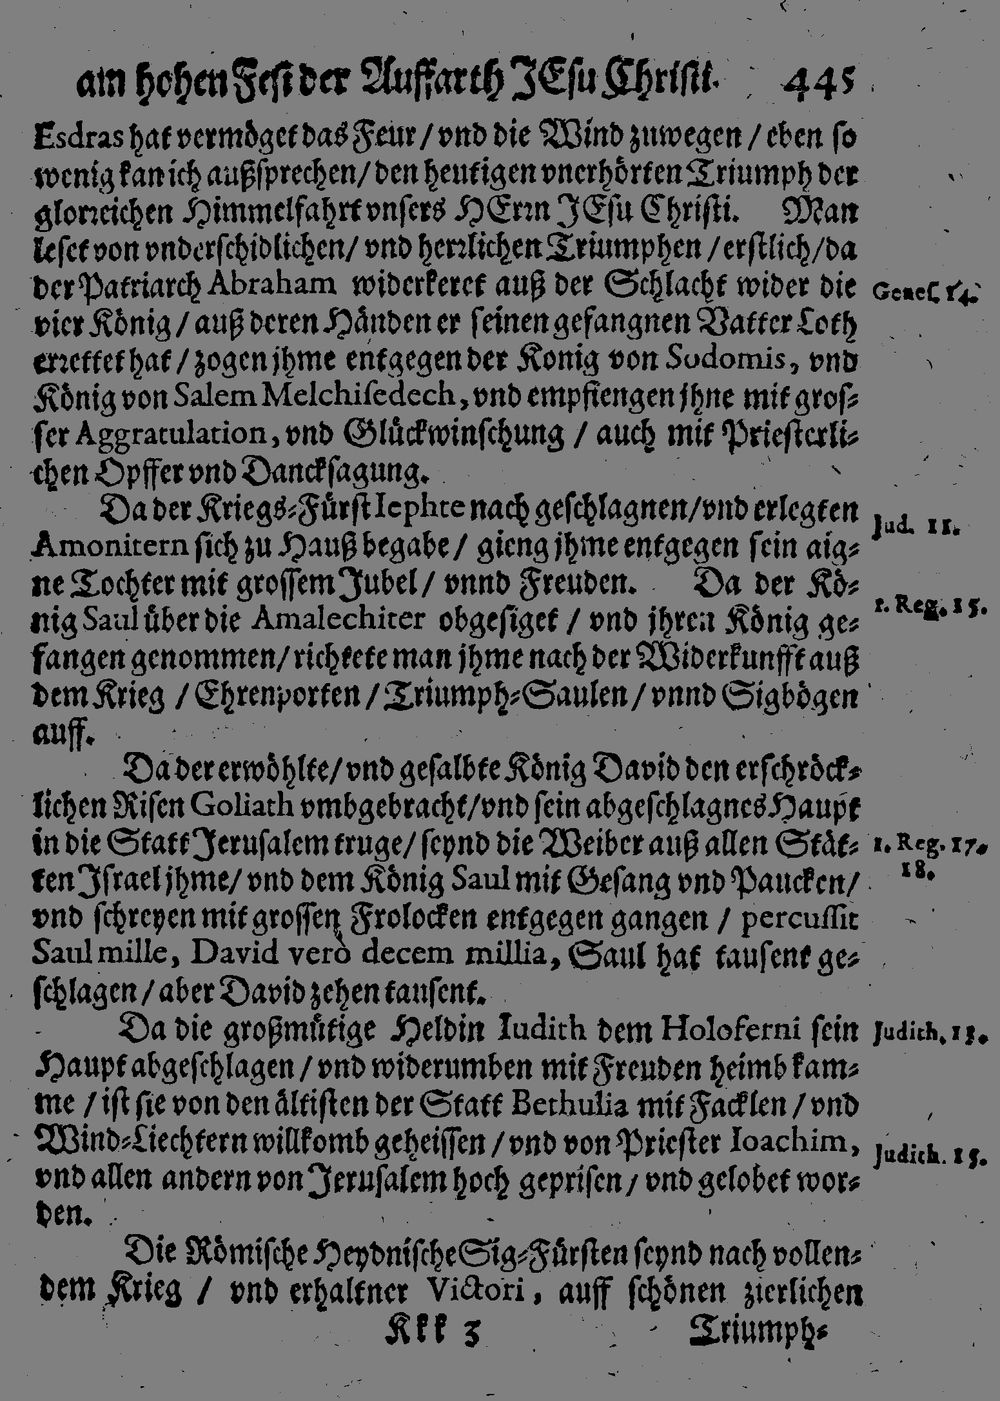 am hohen Fest der Auffarth JEsu Christi. 445
Esdras hat vermöget das Feur / vnd die Wind zuwegen / eben so
wenig kan ich außsprechen / den heutigen vnerhörten Triumph der
glorreichen Himmelfahrt vnsers HErrn JEsu Christi. Man
leset von vnderschidlichen / vnd herrlichen Triumphen / erstlich / da
der Patriarch Abraham widerkeret auß der Schlacht wider die
Genes. 14.
vier König / auß deren Händen er seinen gefangnen Vatter Loth
errettet hat / zogen jhme entgegen der Konig von Sodomis, vnd
König von Salem Melchisedech, vnd empfiengen jhne mit gros-
ser Aggratulation, vnd Glückwinschung / auch mit Priesterli-
chen Opffer vnd Dancksagung.
Da der Kriegs-Fürst Iephte nach geschlagnen / vnd erlegten
Jud. 11.
Amonitern sich zu Hauß begabe / gieng jhme entgegen sein aig-
ne Tochter mit grossem Jubel / vnnd Freuden. Da der Kö-
1. Reg. 15.
nig Saul über die Amalechiter obgesiget / vnd jhren König ge-
fangen genommen / richtete man jhme nach der Widerkunfft auß
dem Krieg / Ehrenporten / Triumph-Saulen / vnnd Sigbögen
auff.
Da der erwöhlte / vnd gesalbte König David den erschröck-
lichen Risen Goliath vmbgebracht / vnd sein abgeschlagnes Haupt
in die Statt Jerusalem truge / seynd die Weiber auß allen Stät-
1. Reg. 17.
18.
ten Israel jhme / vnd dem König Saul mit Gesang vnd Paucken /
vnd schreyen mit grossen Frolocken entgegen gangen / percussit
Saul mille, David verò decem millia, Saul hat tausent ge-
schlagen / aber David zehen tausent.
Da die großmütige Heldin Iudith dem Holoferni sein
Judith. 13.
Haupt abgeschlagen / vnd widerumben mit Freuden heimb kam-
me / ist sie von den ältisten der Statt Bethulia mit Facklen / vnd
Wind-Liechtern willkomb geheissen / vnd von Priester Ioachim,
Judith. 15.
vnd allen andern von Jerusalem hoch geprisen / vnd gelobet wor-
den.
Die Römische Heydnische Sig-Fürsten seynd nach vollen-
dem Krieg / vnd erhaltner Victori, auff schönen zierlichen
Kkk 3 Triumph-